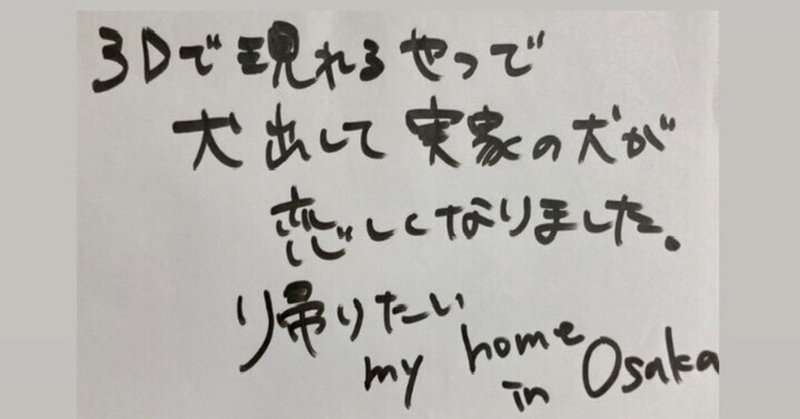 3Dで現れるやつで
犬出して 実家の犬が
恋しくなりました。
帰りたい
my home
in Osaka